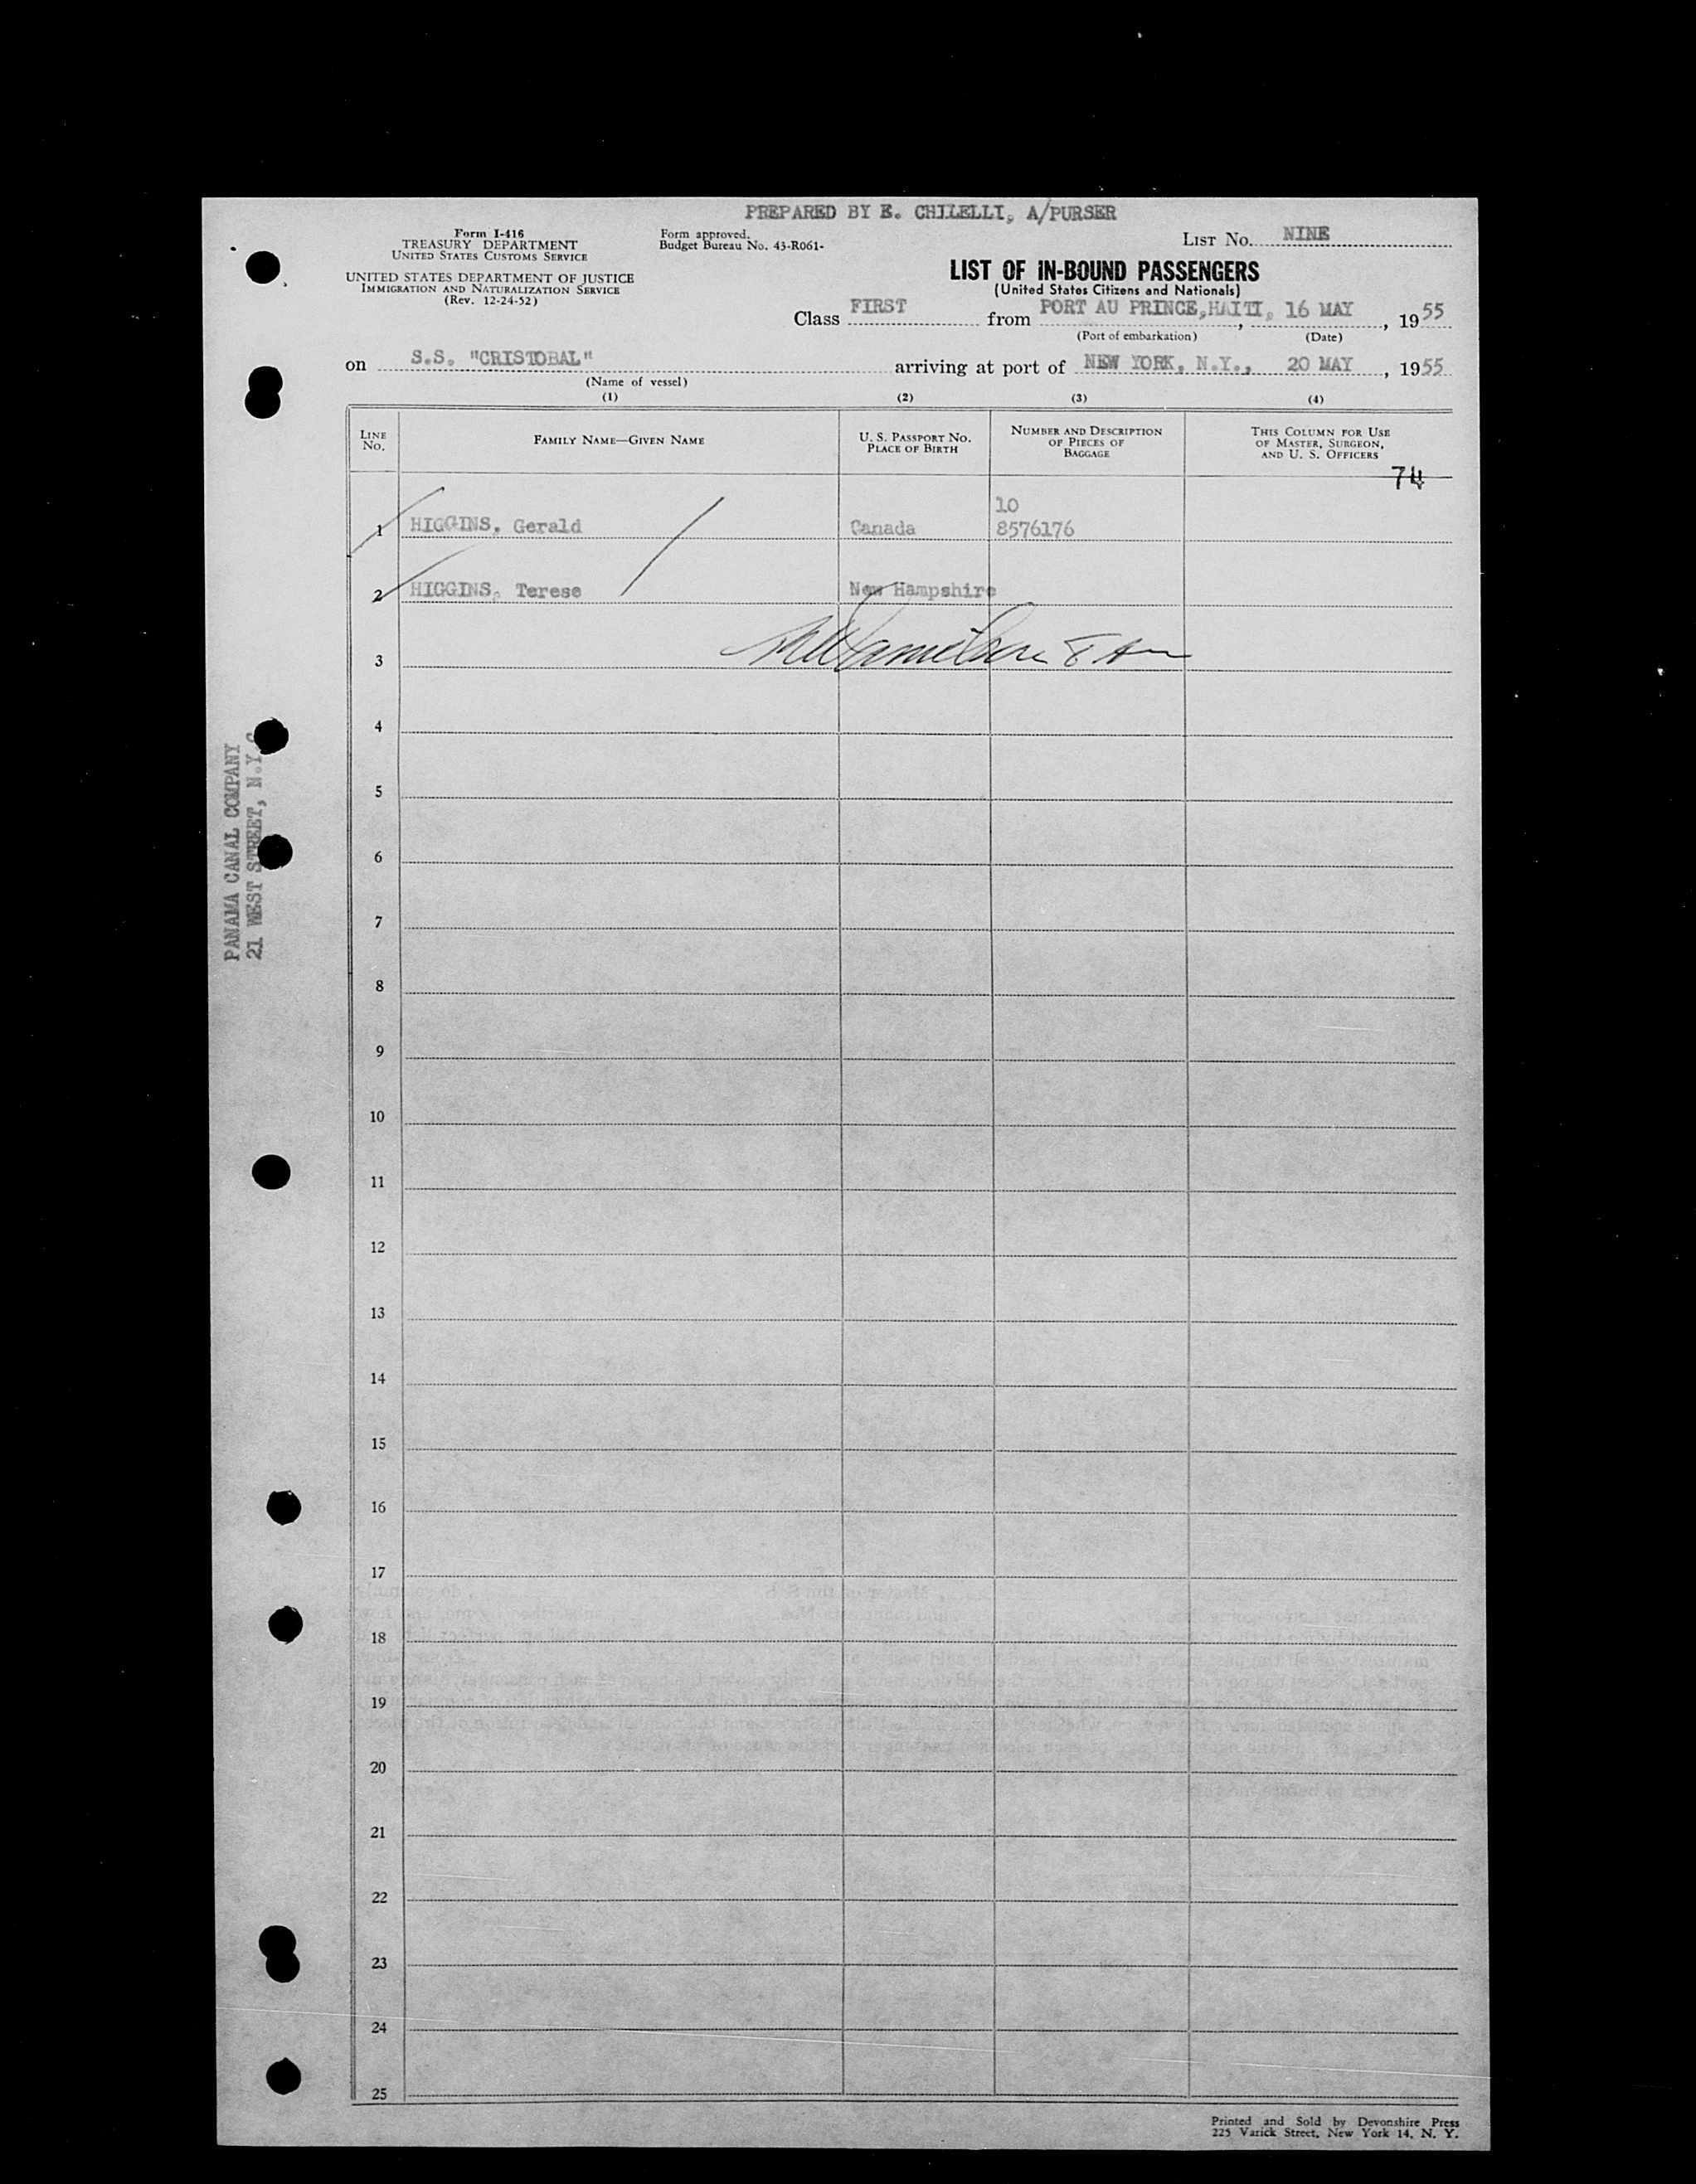 PREPARED BY E. CHILELLI, A/PURSER
Form I-416
TREASURY DEPARTMENT
UNITED STATES CUSTOMS SERVICE
UNITED STATES DEPARTMENT OF JUSTICE
IMMIGRATION AND NATURALIZATION SERVICE
(Rev. 12-24-52)
Form approved.
Budget Bureau No. 43-R061-
LIST NO. NINE
LIST OF IN-BOUND PASSENGERS
(United States Citizens and Nationals)
Class FIRST from PORT AU PRINCE, HAITI, 16 MAY, 1955
(Port of embarkation) (Date)
on S.S. "CRISTOBAL" arriving at port of NEW YORK, N.Y., 20 MAY, 1955
(Name of vessel)
(1) (2) (3) (4)
LINE NO. FAMILY NAME—GIVEN NAME U. S. PASSPORT NO. PLACE OF BIRTH NUMBER AND DESCRIPTION OF PIECES OF BAGGAGE THIS COLUMN FOR USE OF MASTER, SURGEON, AND U. S. OFFICERS
74
10
1 HIGGINS, Gerald Canada 8576176
2 HIGGINS, Terese New Hampshire
3
4
5
6
7
8
9
10
11
12
13
14
15
16
17
18
19
20
21
22
23
24
25
PANAMA CANAL COMPANY
21 WEST STREET, N.Y.C
Printed and Sold by Devonshire Press
225 Varick Street, New York 14, N. Y.